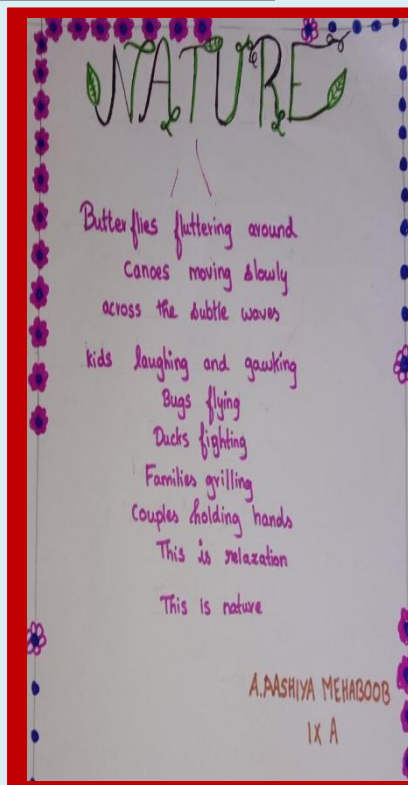 NATURE
Butterflies fluttering around
Canoes moving slowly
across the subtle waves
kids laughing and gawking
Bugs flying
Ducks fighting
Families grilling
Couples holding hands
This is relaxation
This is nature
A.AASHIYA MEHABOOB
IX A